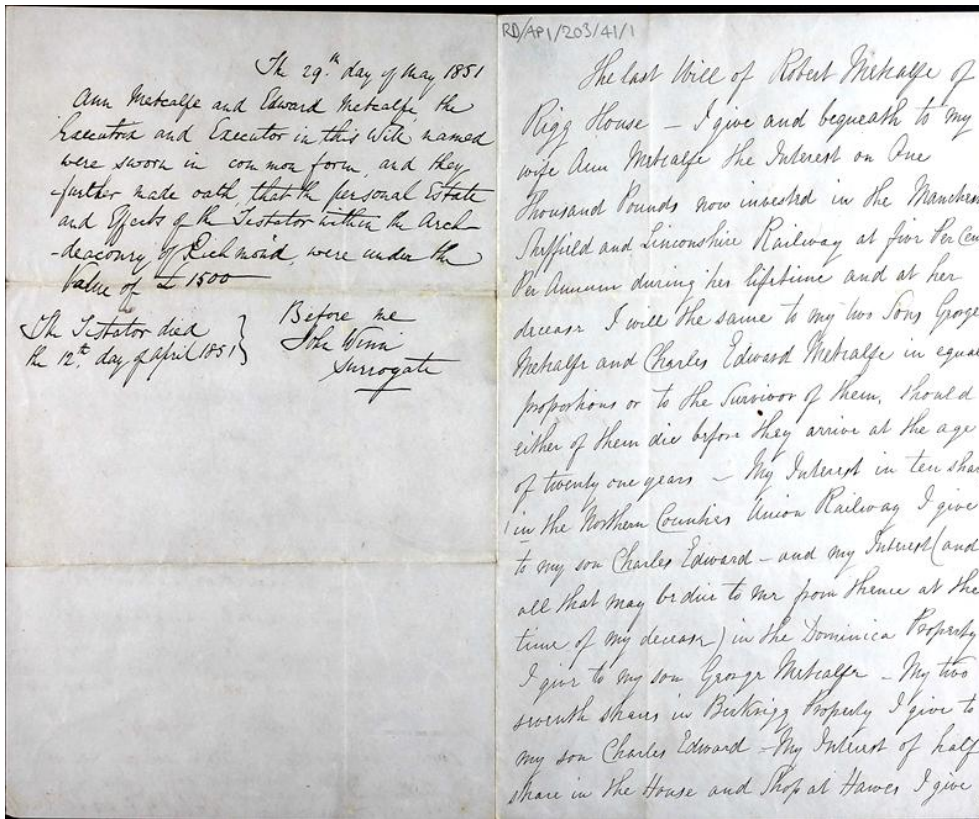 The 29.th day of May 1851
Ann Metcalfe and Edward Metcalfe, the
Executrix and Executor in this Will named
were sworn in common form, and they
further made oath, that the personal Estate
and Effects of the Testator within the Arch-
-deaconry of Richmond, were under the
Value of £1500
The Testator died
the 12th. day of April 1851
Before me
John Winn
Surrogate
RD/AP1/203/41/1
The last Will of Robert Metcalfe of
Rigg House – I give and bequeath to my
wife Ann Metcalfe the Interest on One
Thousand Pounds now invested in the Manches
Sheffield and Linconshire Railway at five Per Cen
Per Annum during her lifetime and at her
decease I will the same to my two Sons George
Metcalfe and Charles Edward Metcalfe in equal
proportions or to the Survivor of them, should
either of them die before they arrive at the age
of twenty one years – My Interest in ten shar
in the Northern Counties Union Railway I give
to my son Charles Edward – and my Interest (and
all that may be due to me from thence at the
time of my decease) in the Dominica Property
I give to my son George Metcalfe – My two
seventh shares in Birkrigg Property I give to
my son Charles Edward – My Interest of half
share in the House and Shop at Hawes I give